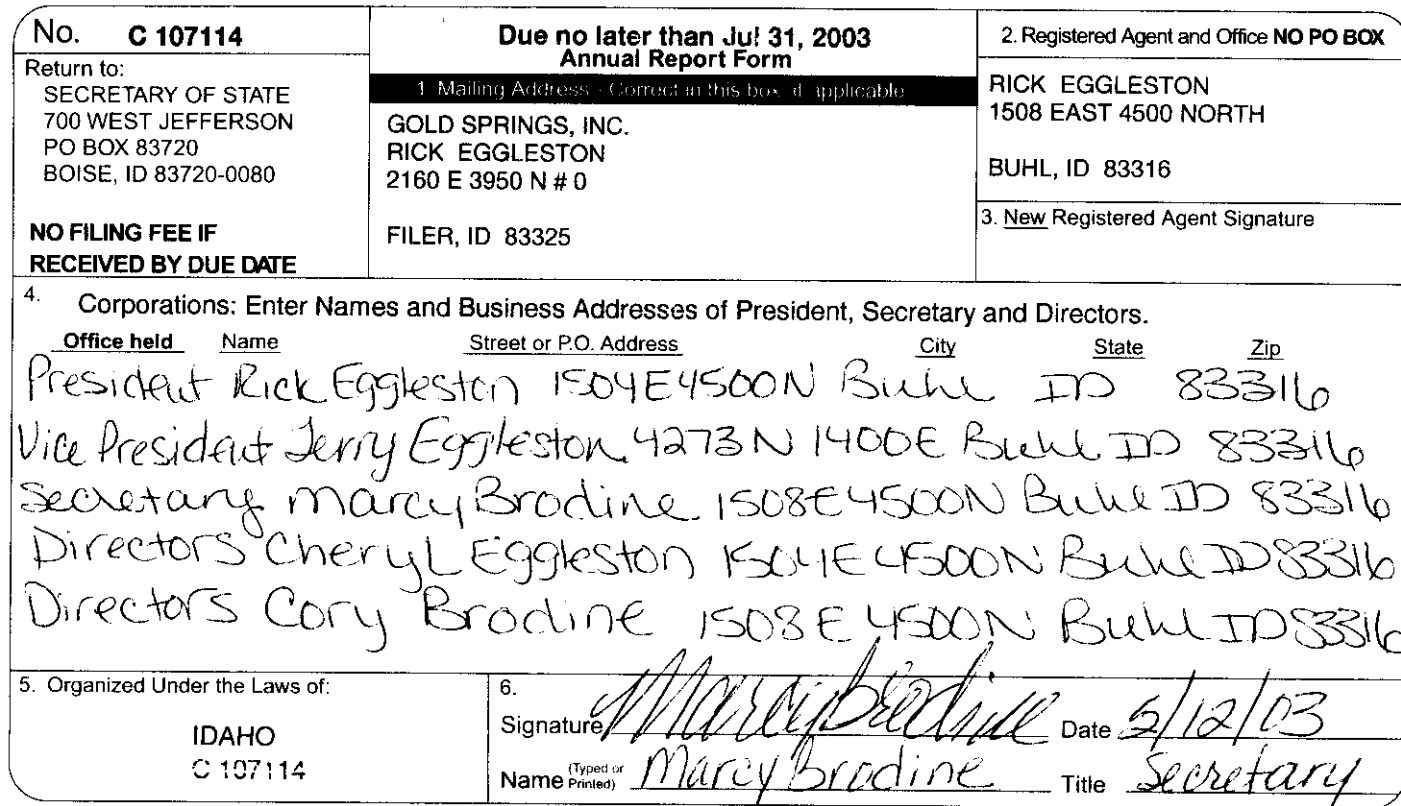 No. C 107114
Return to:
SECRETARY OF STATE
700 WEST JEFFERSON
PO BOX 83720
BOISE, ID 83720-0080
NO FILING FEE IF
RECEIVED BY DUE DATE
Due no later than Jul 31, 2003
Annual Report Form
1. Mailing Address - Correct in this box, if applicable
GOLD SPRINGS, INC.
RICK EGGLESTON
2160 E 3950 N # 0
FILER, ID 83325
2. Registered Agent and Office NO PO BOX
RICK EGGLESTON
1508 EAST 4500 NORTH
BUHL, ID 83316
3. New Registered Agent Signature
4. Corporations: Enter Names and Business Addresses of President, Secretary and Directors.
Office held Name Street or P.O. Address City State Zip
President Rick Eggleston 1504E4500N Buhl ID 83316
Vice President Jerry Eggleston 4273N 1400E Buhl ID 83316
Secretary Marcy Brodine 1508E4500N Buhl ID 83316
Directors Cheryl Eggleston 1504E4500N Buhl ID 83316
Directors Cory Brodine 1508E 4500N Buhl ID 83316
5. Organized Under the Laws of:
IDAHO
C 107114
6.
Signature Marcy Brodine Date 5/12/03
Name (Typed or Printed) Marcy Brodine Title Secretary